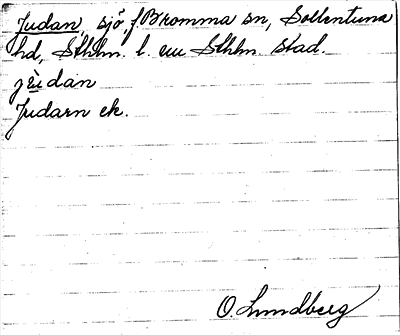 Judan, sjö, f. Bromma sn, Sollentuna
hd, Sthlm. l. nu Sthlm. stad.
jùdan
Judarn ek.
O. Lundberg